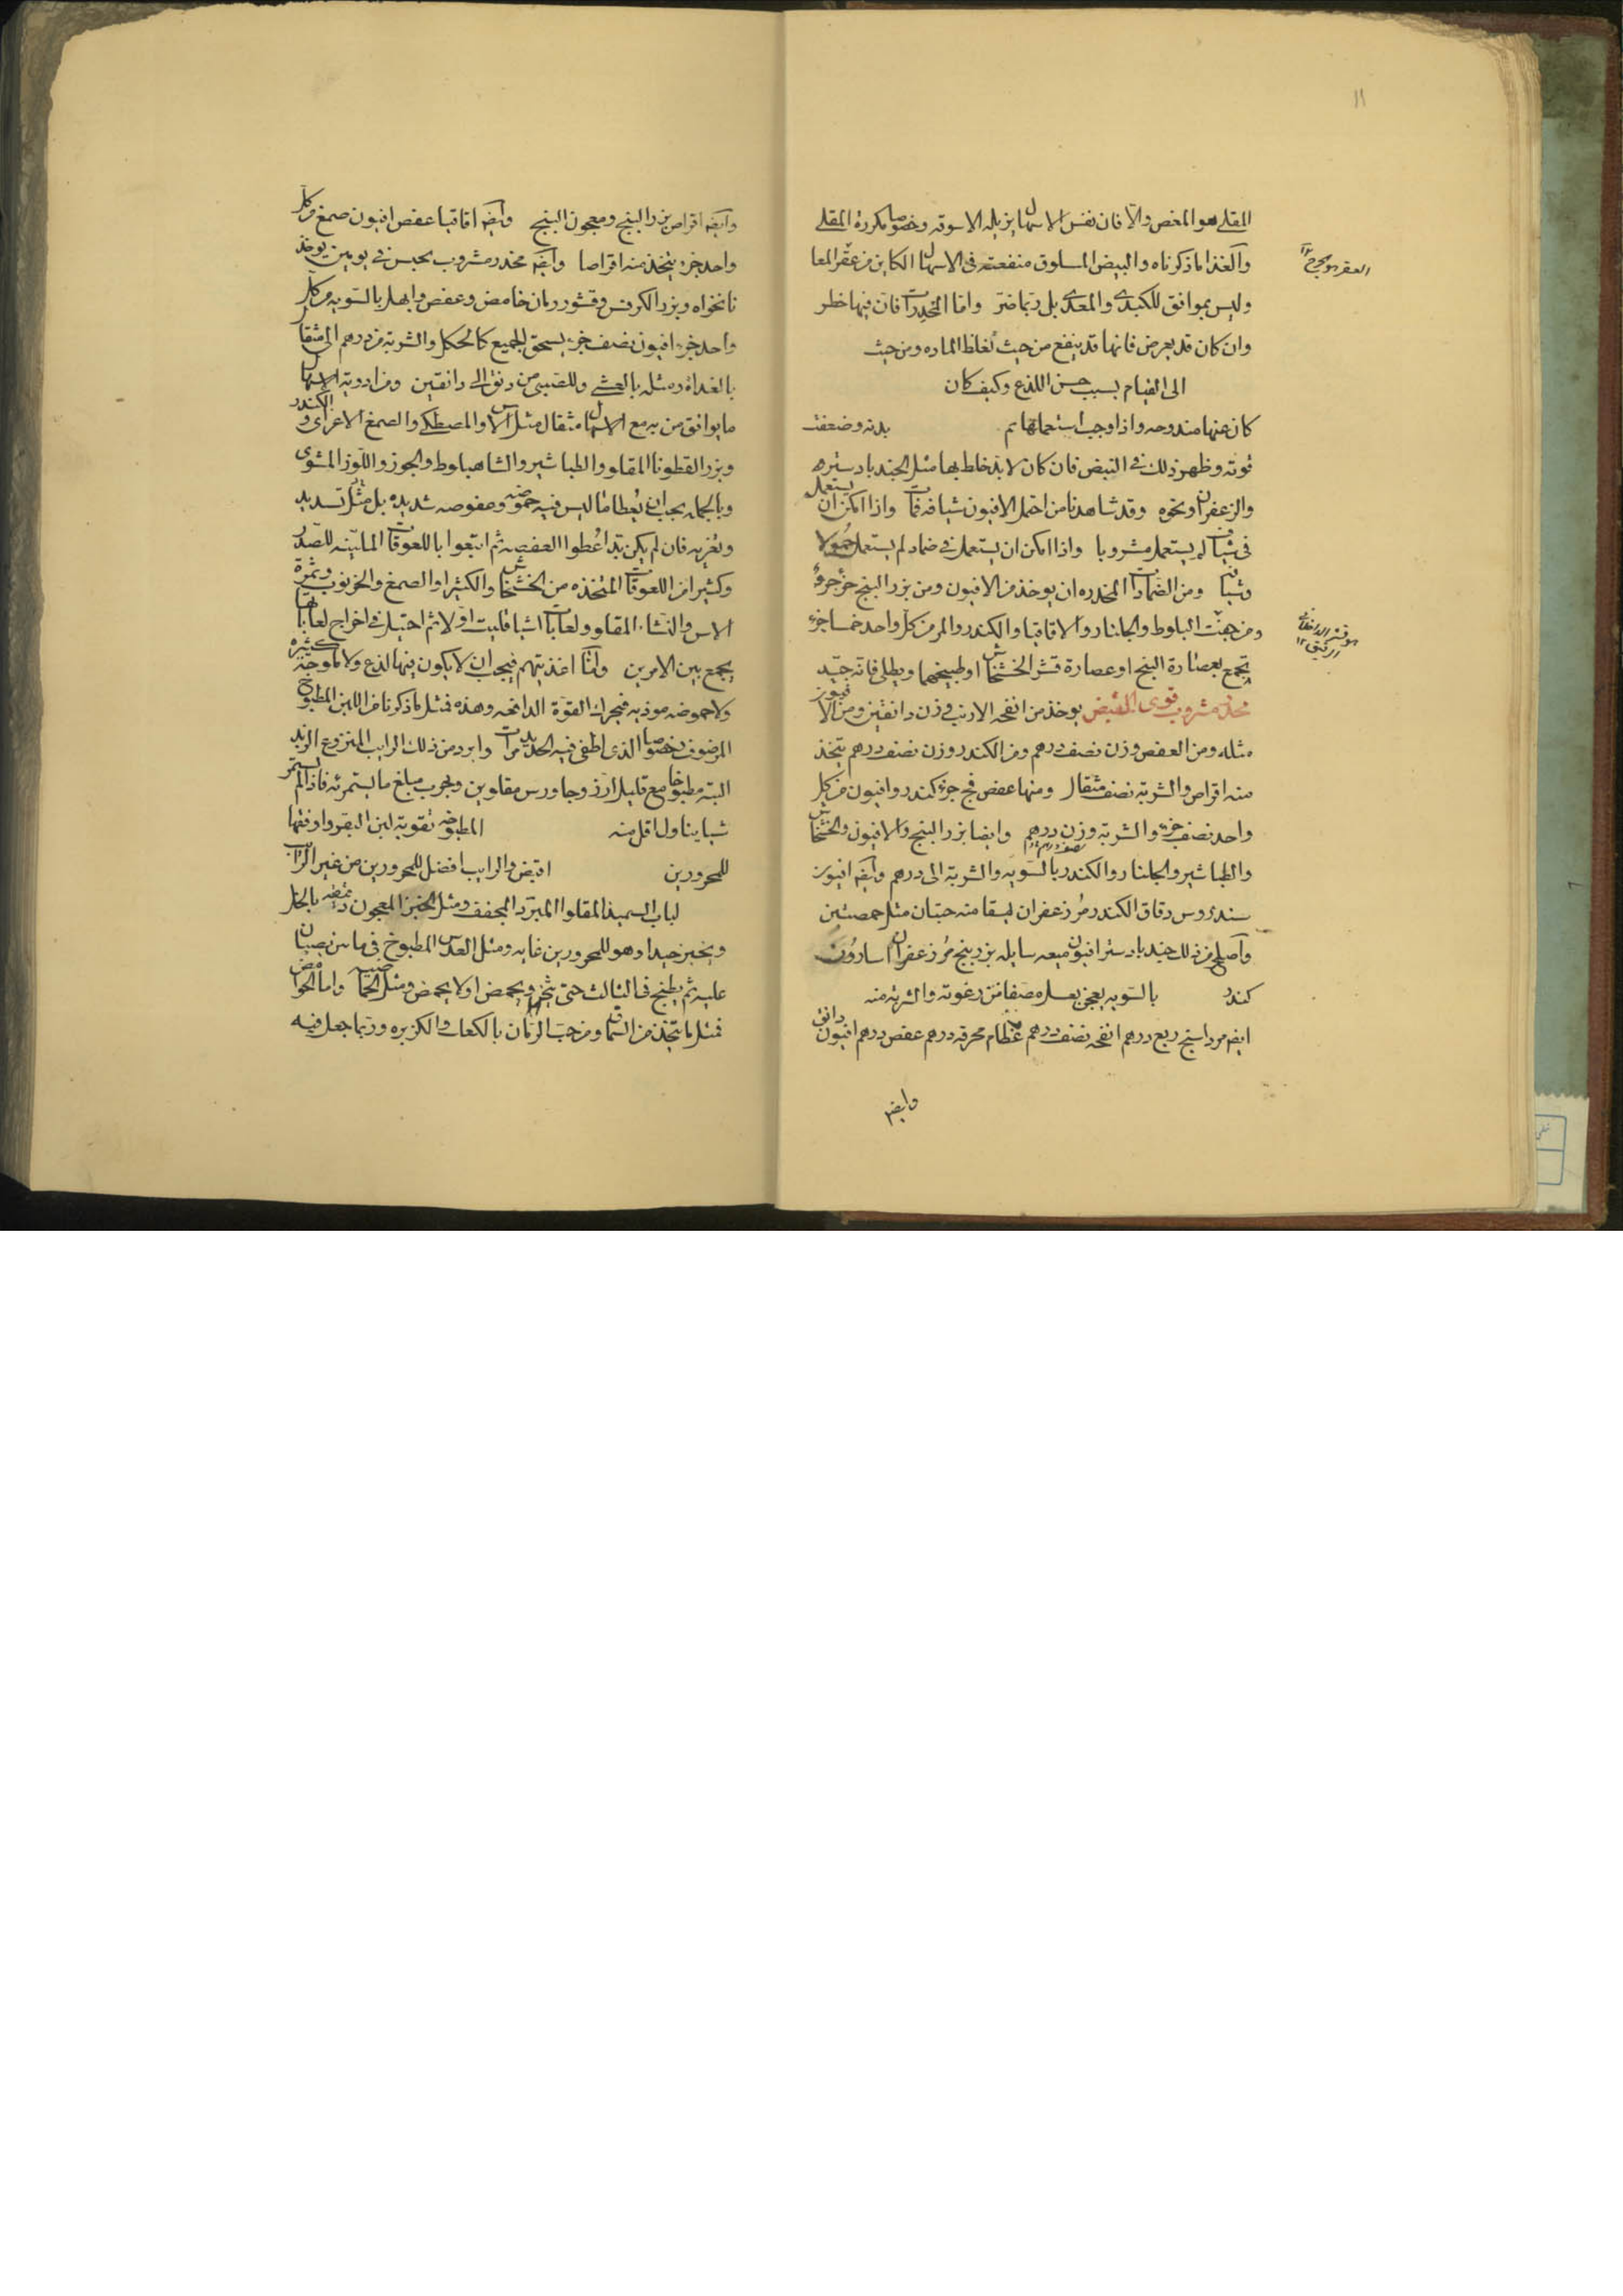 ١١
المقلي هو المغص والا فان نفس الاسهال يزيله الاسوقه وخصوصا مكررة المقلي
والغذا ما ذكرناه والبيض المسلوق منفعته في الاسهال الكاين من عقر المعا
العقر هو مجروح ١٢
وليس بموافق للكبدي والمعدي بل ربما ضر واما المخدرات فان فيها خطر
وان كان قد يعرض فانها قد ينفع من حيث تغلظ الماده ومن حيث
الى القيام بسبب حس اللذع وكيف كان
كان عنها مندوحه واذا وجب استعمالها ثم بدنه وضعفت
قوته وظهر ذلك في النبض فان كان لا بد خلط بها مثل الجندبادستره
والزعفران ونحوه وقد شاهدنا من احتمل الافيون شيافه فمات واذا امكن ان يستعمل
في شياف لم يستعمل مشروبا واذا امكن ان يستعمل في ضماد لم يستعمل حمولا
وشيافه ومن الضمادات المخدره ان يوخذ من الافيون ومن بزر البنج جزء جزء
ومن جفت البلوط والجلنار والاقاقيا والكندر والمر من كل واحد خمسا جزء
هو قشر الداخلة الرقيق ١٢
يجمع بعصارة البنج او عصارة قشر الخشخاش او طبيخهما ويطلى فانه جيد
مخدر مشروب قوي القبض يوخذ من انفحه الارنب وزن دانقين ومن الافيون
مثله ومن العفص وزن نصف درهم ومن الكندر وزن نصف درهم يتخذ
منه اقراص والشربة نصف مثقال ومنها عفص فج جزء كندر وافيون من كل
واحد نصف جزء والشربة وزن درهم وايضا بزر البنج والافيون والخشخاش
والطباشير والجلنار والكندر بالسويه والشربة الى درهم وايضه افيون
سندروس دقاق الكندر مر زعفران يسقا منه حبتان مثل حمصتين
واصلح من ذلك جندبادستر افيون ميعه سايله بزر بنج مر زعفران اسارون
كندر بالسويه يعجن بعسل مصفا من رغوته والشربة منه
ايضه مرداسنج ربع درهم انفحه نصف درهم عظام محرقه درهم عفص درهم افيون دانق
وايضه
وايضه اقراص بزر البنج ومعجون البنج وايضه اقاقيا عفص افيون صمغ من كل
واحد جزء يتخذ منه اقراصا وايضه مخدر مشروب يحبس في يومين يوخذ
نانخواه وبزر الكرفس وقشور رمان حامض وعفص وابهل بالسويه من كل
واحد جزء افيون نصف جزء يسحق الجميع كالكحل والشربة من درهم الى مثقال
بالغداة ومثله بالعشي وللصبي من دنق الى دانقين ومن ادوية الاسهال
ما يوافق من به مع الاسهال مثقال مثل الاس والمصطكي والصمغ الاعرابي والكندر
وبزر القطونا المقلو والطباشير والشاهبلوط والجوز واللوز المشوي
وبالجمله يجب ان يعطا ما ليس فيه حموضه وعفوصه شديده بل مثل تسديد
وتغريه فان لم يكن بد اعطوا العفصه ثم اتبعوا باللعوقات الملينه للصدر
وكثير من اللعوقات المتخذه من الخشخاش والكثيرا والصمغ والخرنوب وثمرة
الاس والنشاء المقلو ولعابات اشيا قليت اولا ثم احتيل في اخراج لعابها
يجمع بين الامرين واما اغذيتهم فيجب ان لا يكون فيها لذع ولا ملوحة كثيره
ولا حموضه موذيه فيحرك القوة الدافعه وهذه فمثل ما ذكرنا من اللبن المطبوخ
المرضوف وخصوصا الذي اطفي فيه الحديد مرات وابرد من ذلك الرايب المنزوع الزبد
البتة مطبوخا مع قليل ارز وجاورس مقلوين ويجرب مبلغ ما يستمرئه فاذا لم يستمر
شيا يتناول اقل منه المطبوخه تقوية لبن البقر واوفقها
للمحرورين اقبض والرايب افضل للمحرورين من غير الرايب
لباب السميذ المقلو المبرد المجفف ومثل الخبز المعجون بالخل
ويخبز جيدا وهو للمحرورين غايه ومثل العدس المطبوخ في مائين يصبان
عليه ثم يطبخ في الثالث حتى يثخن ويحمض او لا يحمض ومثل الحماضيه واما الحوامض
فمثل ما يتخذ من السماق ومن حب الرمان بالكعك والكزبره وربما جعل فيه